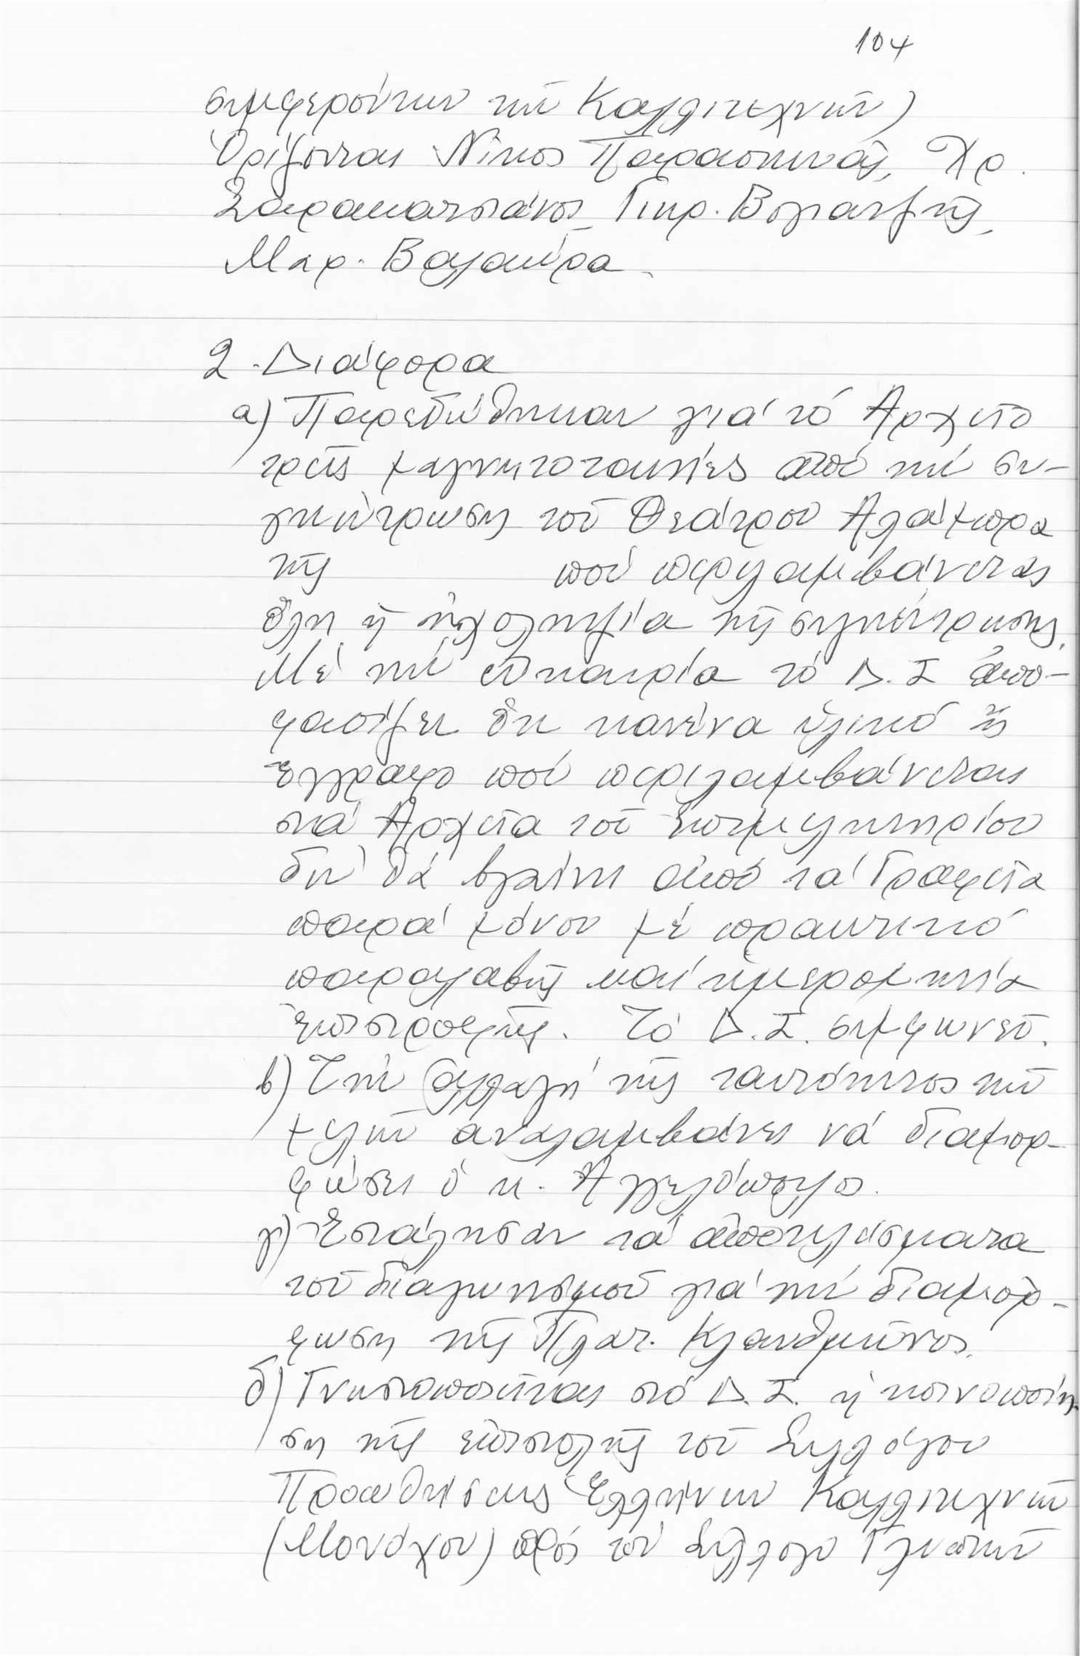 104
συμφερόντων τῶν Καλλιτεχνῶν)
Ὁρίζονται Νῖκος Παρασκευᾶς, Χρ.
Σαρακατσιάνος, Γιωρ. Βογιατζῆς,
Μαρ. Βαλαώρα.
2. Διάφορα
α) Παρεδώθηκαν γιά τό Ἀρχεῖο
τρεῖς μαγνητοταινίες ἀπό τήν συ-
γκέντρωση τοῦ Θεάτρου Ἀλάμπρα
τῆς πού περιλαμβάνεται
ὅλη ἡ ἠχοληψία τῆς συγκέντρωσης.
Μέ τήν εὐκαιρία τό Δ.Σ ἀπο-
φασίζει ὅτι κανένα ὑλικό ἤ
ἔγγραφο πού περιλαμβάνεται
στά Ἀρχεῖα τοῦ Ἐπιμελητηρίου
δέν θά βγαίνει ἀπό τά Γραφεῖα
παρά μόνον μέ πρακτικό
παραλαβῆς καί ἡμερομηνία
ἐπιστροφῆς. Τό Δ.Σ. συμφωνεῖ.
β) Τήν ἀλλαγή τῆς ταυτότητος τῶν
μελῶν ἀναλαμβάνει νά διαμορ-
φώσει ὁ κ. Ἀγγελόπουλος.
γ) Ἐστάλησαν τά ἀποτελέσματα
τοῦ διαγωνισμοῦ γιά τήν διαμόρ-
φωση τῆς Πλατ. Κλαυθμῶνος.
δ) Γνωστοποιεῖται στό Δ.Σ. ἡ κοινοποίη-
ση τῆς ἐπιστολῆς τοῦ Συλλόγου
Προωθήσεως Ἑλλήνων Καλλιτεχνῶν
(Μονάχου) πρός τόν Σύλλογο Γλυπτῶν